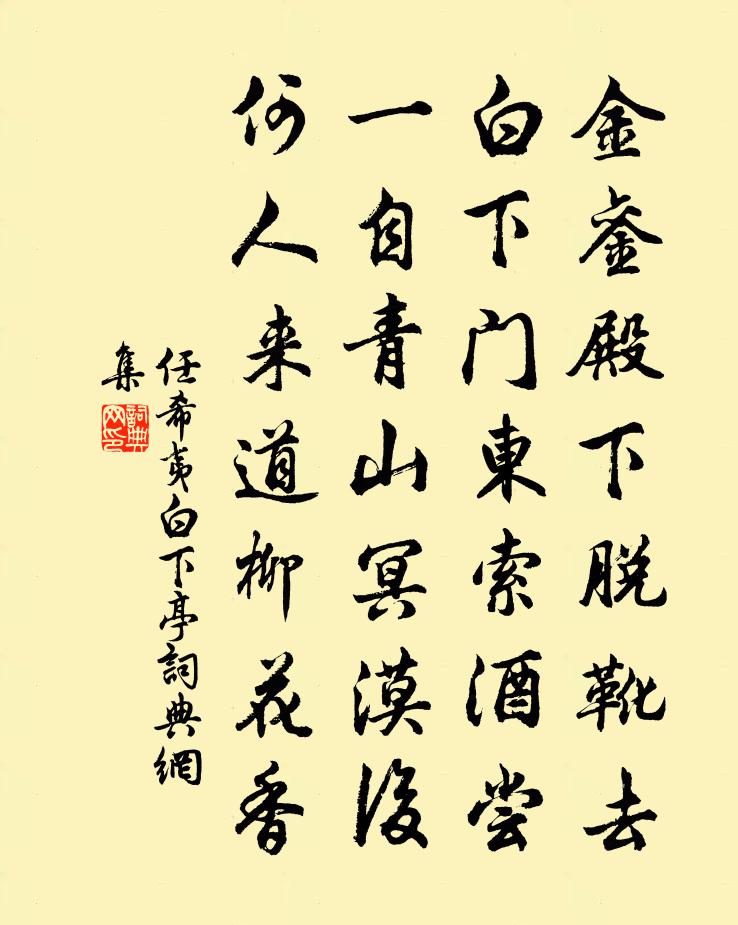 金銮殿下脱靴去
白下門東索酒尝
一自青山冥漠後
何人来道柳花香
任希夷白下亭詞典網
集
詞典网印